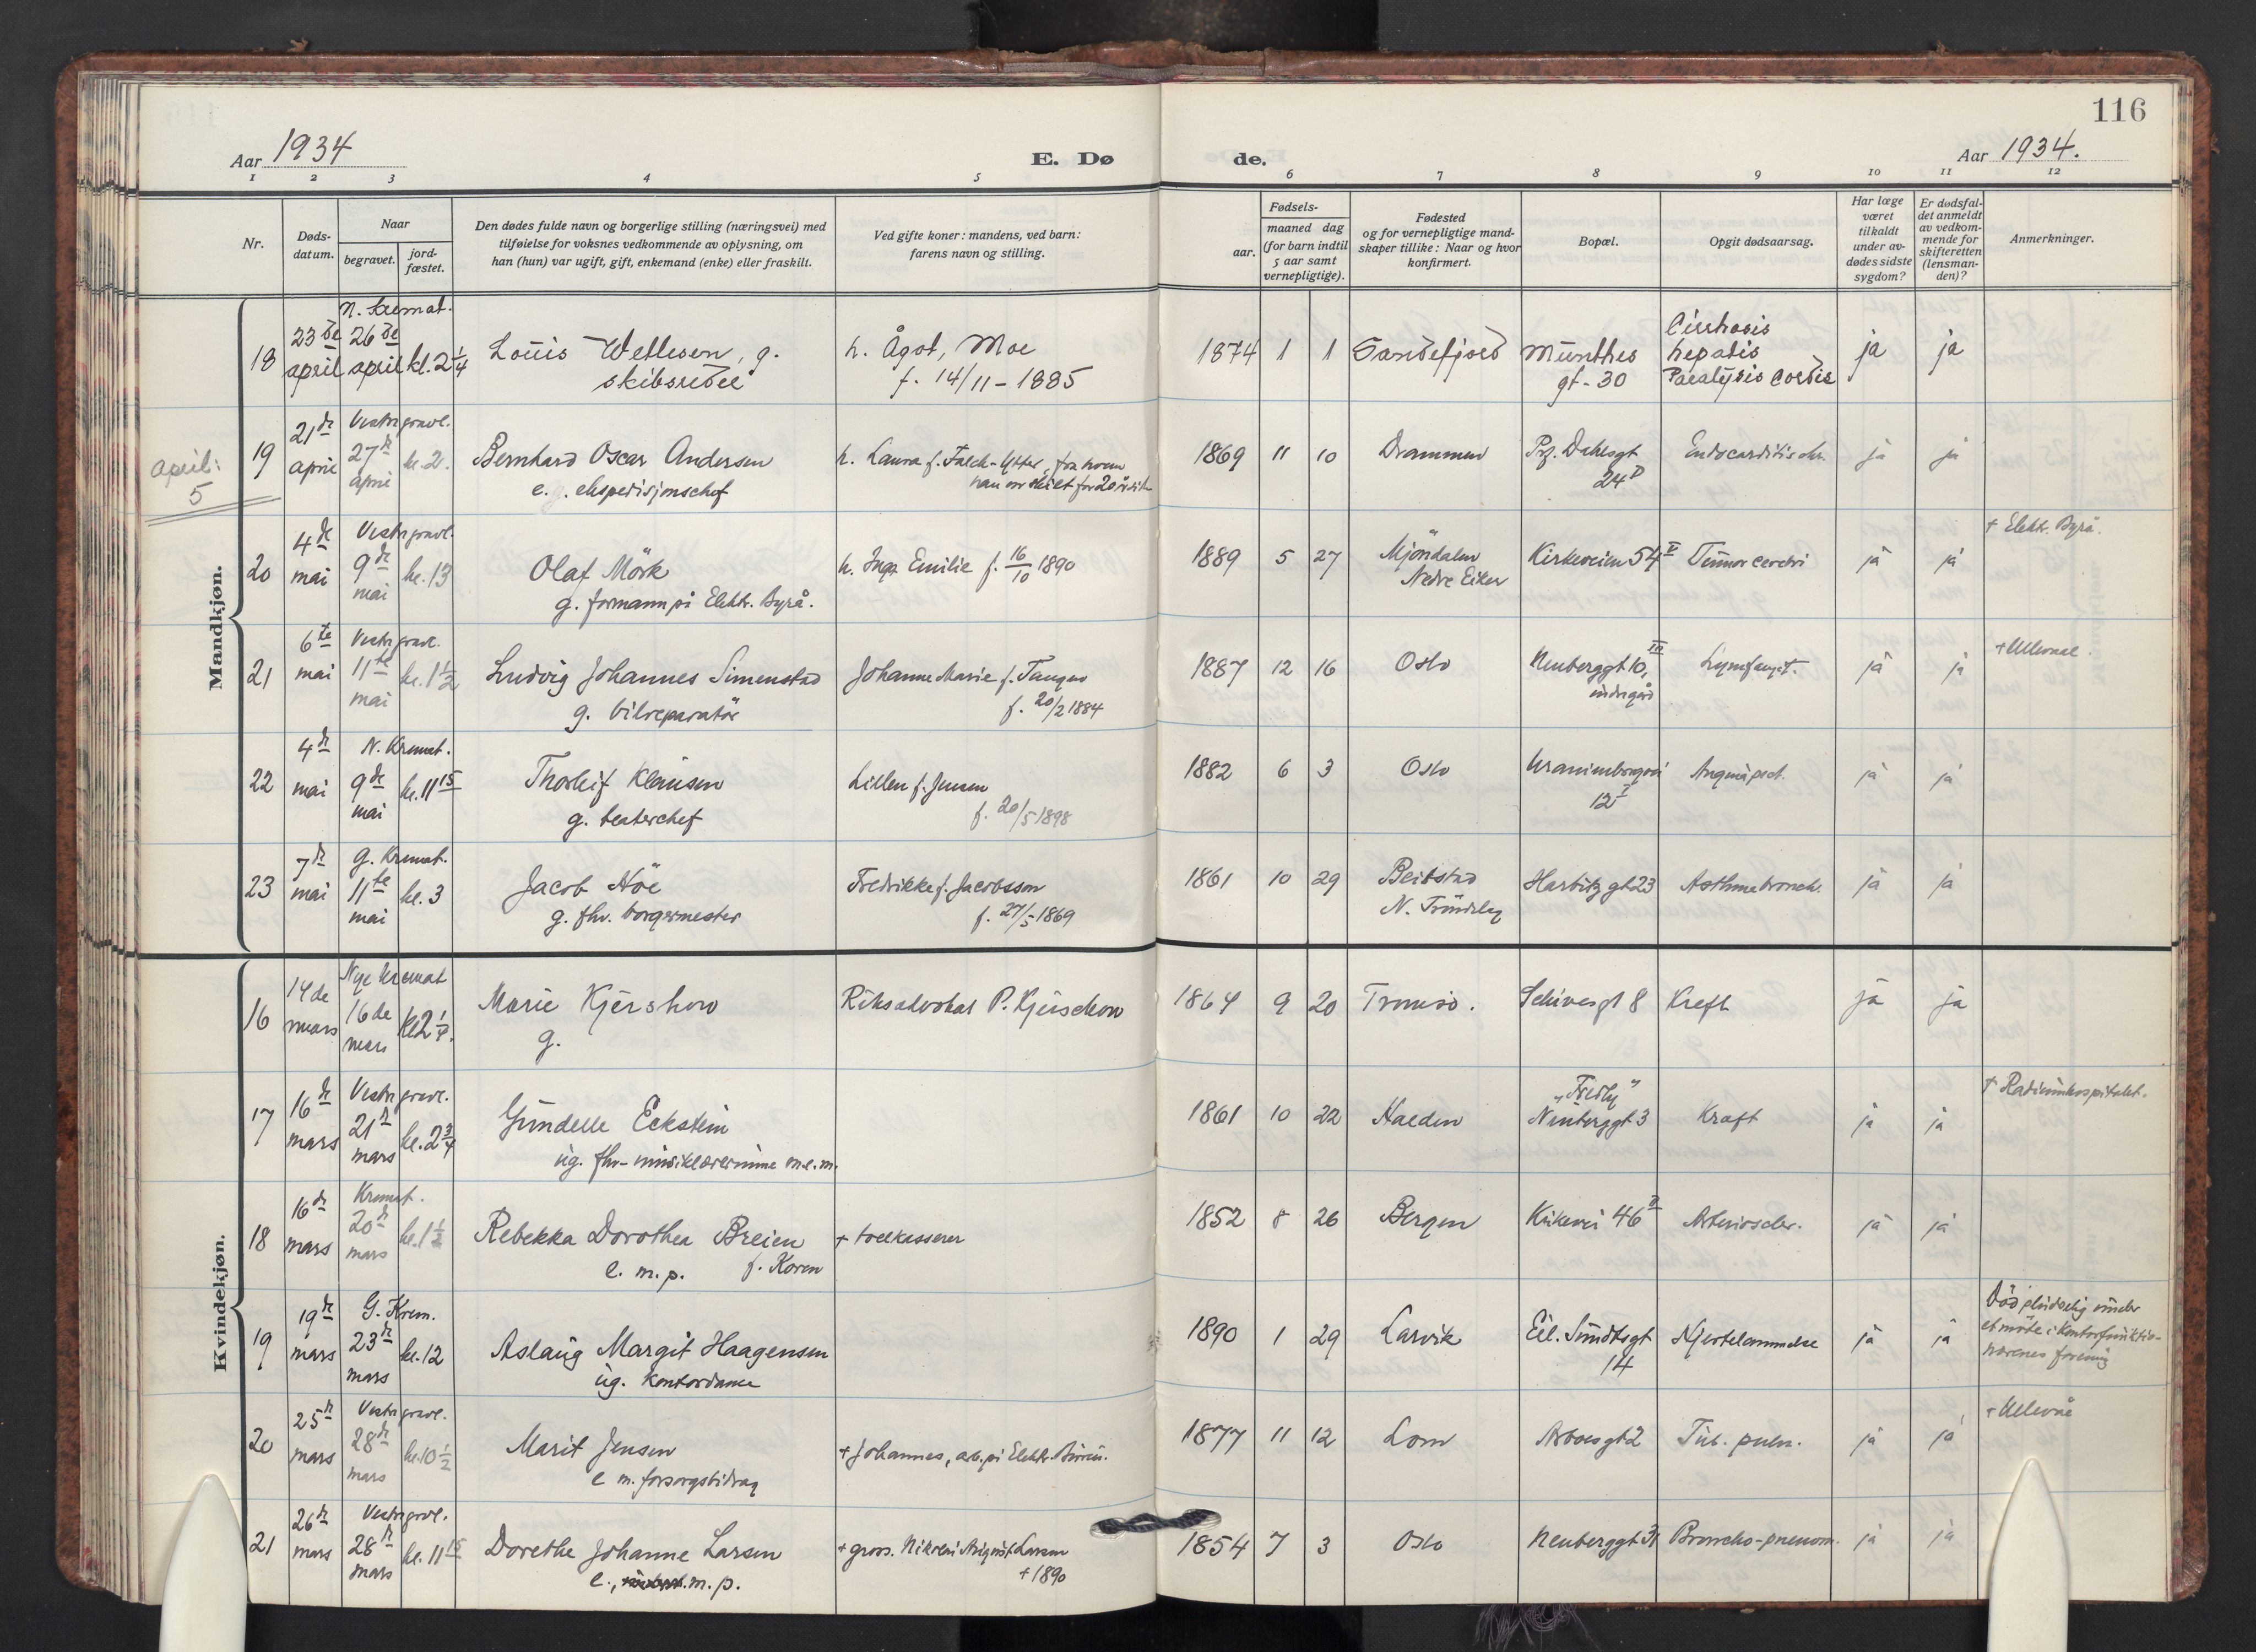 116
Aar 1934
E. Dø
de.
Aar 1934.
1 2 3 4 5 6 7 8 9 10 11 12
Nr.
Døds-
datum.
Naar
begravet.
jord-
fæstet.
Den dødes fulde navn og borgerlige stilling (næringsvei) med
tilføielse for voksnes vedkommende av oplysning, om
han (hun) var ugift, gift, enkemand (enke) eller fraskilt.
Ved gifte koner: mandens, ved barn:
farens navn og stilling.
Fødsels-
aar.
maaned dag
(for barn indtil
5 aar samt
vernepligtige).
Fødested
og for vernepligtige mand-
skaper tillike: Naar og hvor
konfirmert.
Bopæl.
Opgit dødsaarsag.
Har læge
været
tilkaldt
under av-
dødes sidste
sygdom?
Er dødsfal-
det anmeldt
av vedkom-
mende for
skifteretten
(lensman-
den)?
Anmerkninger.
Mandkjøn.
N. Kremat.
18 23de april 26de april kl. 2 1/4
Louis Wettesen, g.
skibsreder
h. Ågot, Moe
f. 14/11 - 1885
1874 1 1 Sandefjord
Munthes
gt. 30
Cirrhosis
hepatis
Paralysis cordis
ja ja
april:
5
Vestre gravl.
19 21de april 27de april kl. 2.
Bernhard Oscar Andersen
e. g. ekspedisjonschef
h. Laura f. Falck-Ytter, fra hvem
han var skilt for 20 år sid
1869 11 10 Drammen
Prf. Dahlsgt
24
Endocarditis chr.
ja ja
Vestre gravl.
20 4de mai 9de mai kl. 13
Olaf Mörk
g. formann på Elektr. Byrå.
h. Inga Emilie f. 16/10 1890
1889 5 27 Mjöndalen
Nedre Eiker
Kirkeveien 54 V
Tumor cerebri
ja ja
† Elektr. Byrå.
Vestre gravl.
21 6te mai 11te mai kl. 1 1/2
Ludvig Johannes Simenstad
g. bilreparatör
Johanne Marie f.
f. 20/2 1884
1887 12 16 Oslo
Neuberggt 10, III
indregård
ja ja
† Ullevaal.
N. Kremat.
22 4de mai 9de mai kl. 11 15
Thorleif Klausen
g. teaterchef
Lillen f. Jensen
f. 20/5 1898
1882 6 3 Oslo
Uranienborgvei
12 I
Angina pect.
ja ja
G. Kremat.
23 7de mai 11te mai kl. 3
Jacob Höe
g. fhv. borgermester
Fredrikke f. Jacobsson
f. 27/5 1869
1861 10 29 Beitstad
N. Tröndelag
Harbitz gt 23
Asthma bronch.
ja ja
Kvindekjøn.
Nye kremat
16 14de mars 16de mars kl 2 1/4.
Marie Kjerschow
g.
Riksadvokat P. Kjerschow
1864 9 20 Tromsö.
Schives gt 8
Kreft
ja ja
Vestre gravl.
17 16de mars 21de mars kl. 2 3/4
Gundelle Eckstein
ug. fhv. musiklærerinne m.e.m.
1861 10 22 Halden
"Fredly"
Neuberggt 3
Kræft
ja ja
† Radiumhospitalet.
Kremat.
18 16de mars 20de mars kl. 1 1/2
Rebekka Dorothea Breien
e. m. p. f. Koren
† tollkasserer
1852 8 26 Bergen
Kirkevei 46 II
Arterioscler.
ja ja
G. Krem.
19 19de mars 23de mars kl. 12
Aslaug Margit Haagensen
ug. kontordame
1890 1 29 Larvik
Eil. Sundtsgt
14
Hjertelammelse
ja ja
Död pludselig under
et möte i Kontorfunktio-
nærenes forening
Vestre gravl.
20 25de mars 28de mars kl. 10 1/2
Marit Jensen
e m. forsorgsbidrag
† Johannes, arb. på Elektr. Bureau.
1877 11 12 Lom
Arboesgt 2
Tub. pulm.
ja ja
† Ullevål
Vestre gravl.
21 26de mars 28de mars kl. 11 15
Dorethe Johanne Larsen
e., m. p.
† gross. Nikolai August Larsen
† 1890
1854 7 3 Oslo
Neuberggt 31
Broncho-pneuom.
ja ja